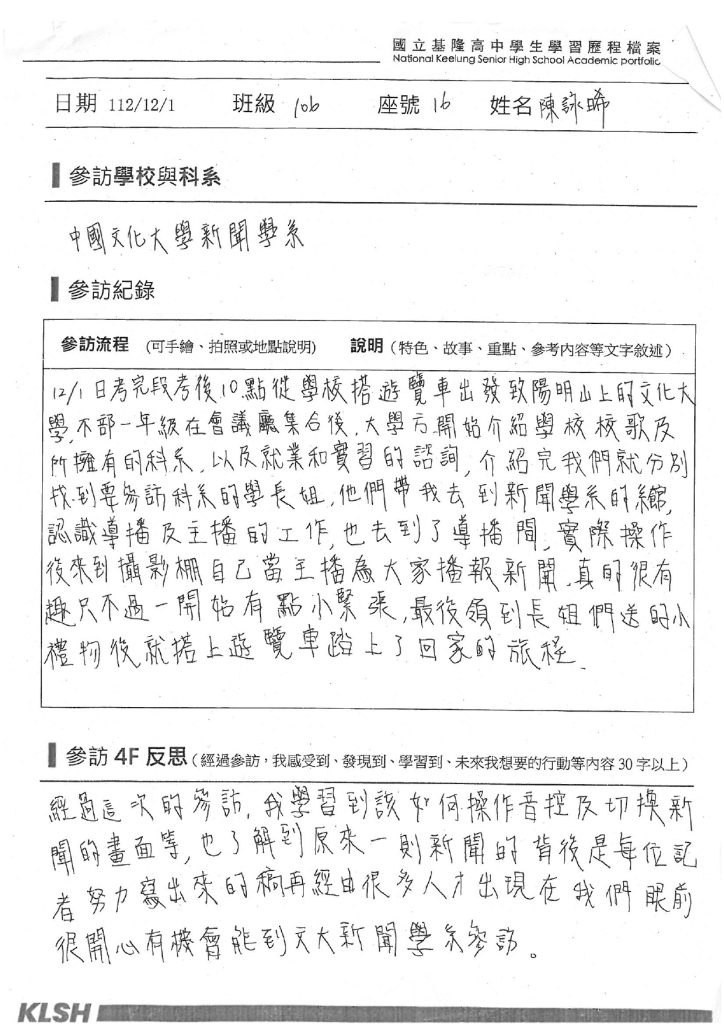 國立基隆高中學生學習歷程檔案
National Keelung Senior High School Academic portfolio
日期 112/12/1 班級 106 座號 16 姓名 陳詠晞
參訪學校與科系
中國文化大學新聞學系
參訪紀錄
參訪流程 (可手繪、拍照或地點說明) 說明 (特色、故事、重點、參考內容等文字敘述)
12/1日考完段考後10點從學校搭遊覽車出發致陽明山上的文化大
學,不部一年級在會議廳集合後,大學方開始介紹學校校歌及
所擁有的科系,以及就業和實習的諮詢,介紹完我們就分別
找到要參訪科系的學長姐,他們帶我去到新聞學系的系館,
認識導播及主播的工作,也去到了導播間,實際操作
後來到攝影棚自己當主播為大家播報新聞,真的很有
趣只不過一開始有點小緊張,最後領到長姐們送的小
禮物後就搭上遊覽車踏上了回家的旅程.
參訪 4F 反思 (經過參訪,我感受到、發現到、學習到、未來我想要的行動等內容 30 字以上)
經過這次的參訪,我學習到該如何操作音控及切換新
聞的畫面等,也了解到原來一則新聞的背後是每位記
者努力寫出來的稿再經由很多人才出現在我們眼前
很開心有機會能到文大新聞學系參訪。
KLSH